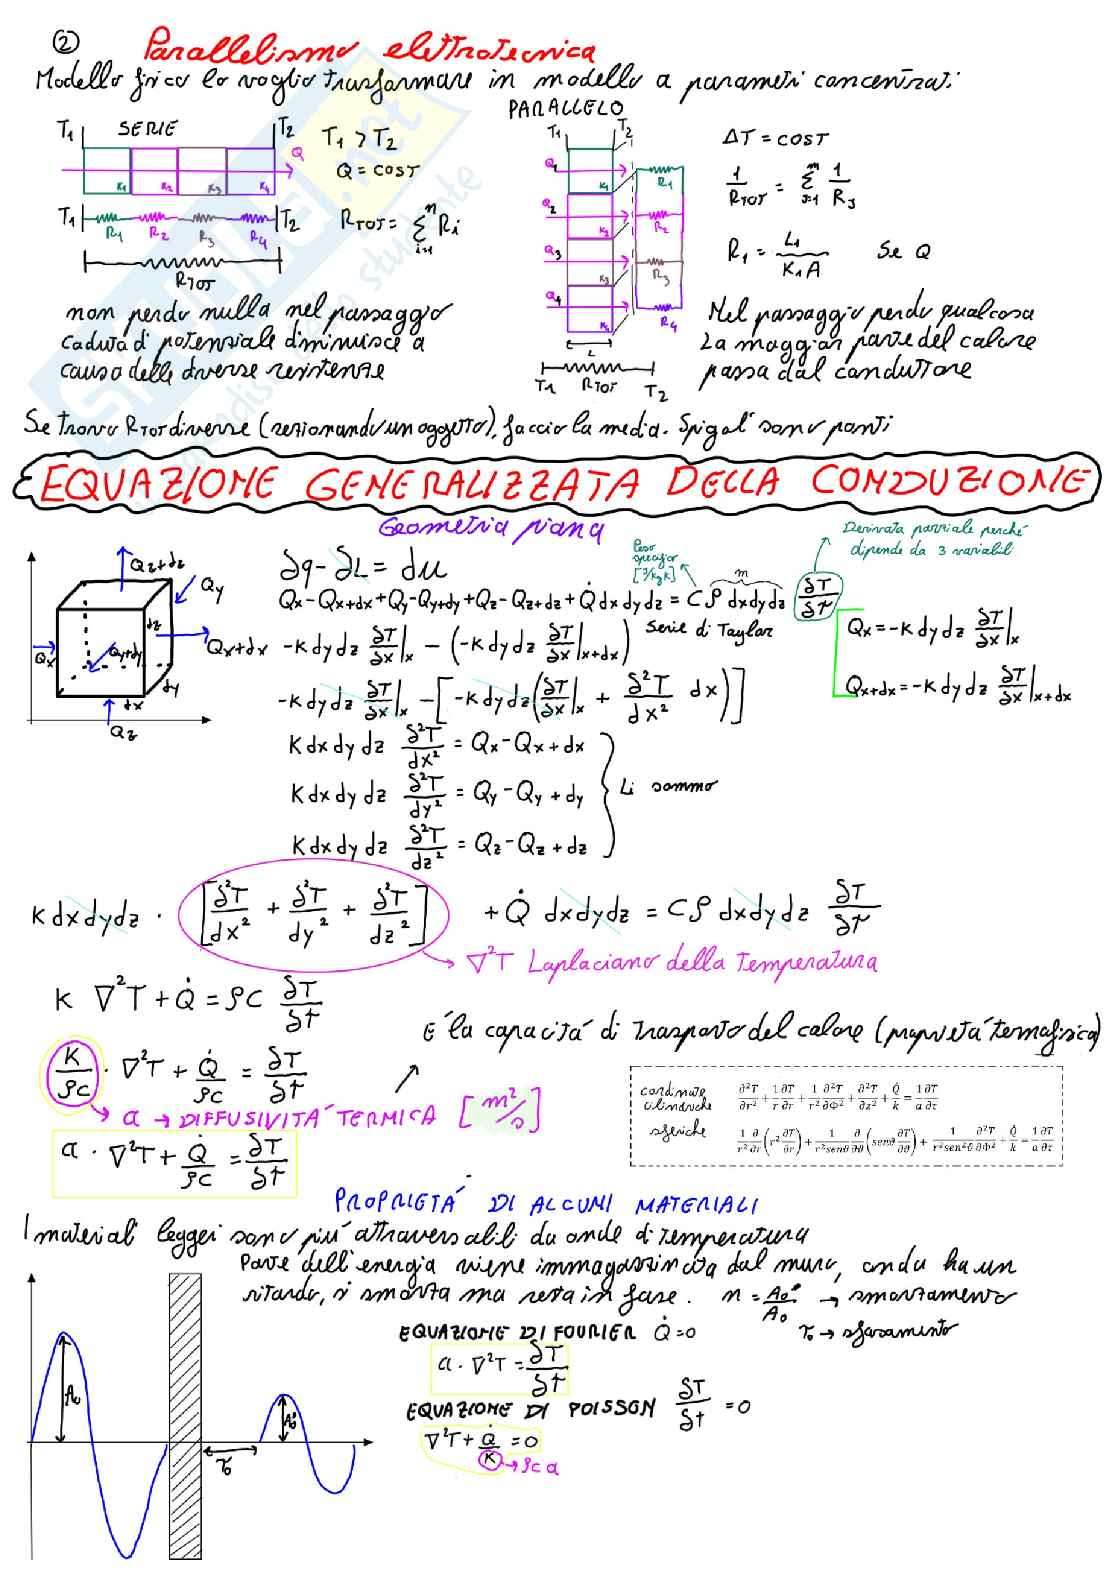 ②
Parallelismo elettrotecnica
Modello fisico lo voglio trasformare in modello a parametri concentrati
T₁ SERIE T₂
Q
K₁ K₂ K₃ K₄
T₁ T₂
R₁ R₂ R₃ R₄
R_TOT
T₁ > T₂
Q = COST
R_TOT = Σⁿᵢ₌₁ Rᵢ
non perdo nulla nel passaggio
caduta di potenziale diminuisce a
causa delle diverse resistenze
PARALLELO
T₁ T₂
Q₁ K₁ R₁
Q₂ K₂ R₂
Q₃ K₃ R₃
Q₄ K₄ R₄
L
T₁ R_TOT T₂
ΔT = COST
1/R_TOT = Σ 1/R₃
R₁ = L₁/K₁A Se Q
Nel passaggio perdo qualcosa
La maggior parte del calore
passa dal conduttore
Se trovo R_TOT diverse (sezionando un oggetto), faccio la media. Spigoli sono ponti
EQUAZIONE GENERALIZZATA DELLA CONDUZIONE
Geometria piana
Derivata parziale perché
dipende da 3 variabili
Peso
specifico
[J/kg K]
m
Qz+dz
Qy
Qx+dx
Qx
Qy+dy
dz
dy
dx
Qz
∂q - ∂L = du
Qx - Qx+dx + Qy - Qy+dy + Qz - Qz+dz + Q̇ dx dy dz = Cρ dx dy dz ∂T/∂τ
Serie di Taylor
-K dy dz ∂T/∂x|x - (-K dy dz ∂T/∂x|x+dx)
Qx = -K dy dz ∂T/∂x|x
-K dy dz ∂T/∂x|x - [-K dy dz (∂T/∂x|x + ∂²T/dx² dx)]
Qx+dx = -K dy dz ∂T/∂x|x+dx
K dx dy dz ∂²T/dx² = Qx - Qx+dx
K dx dy dz ∂²T/dy² = Qy - Qy+dy
Li sommo
K dx dy dz ∂²T/dz² = Qz - Qz+dz
K dx dy dz · [∂²T/dx² + ∂²T/dy² + ∂²T/dz²] + Q̇ dx dy dz = Cρ dx dy dz ∂T/∂τ
→ ∇²T Laplaciano della Temperatura
K ∇²T + Q̇ = ρC ∂T/∂t
È la capacità di trasporto del calore (proprietà termofisica)
K/ρC · ∇²T + Q̇/ρC = ∂T/∂t
→ a → DIFFUSIVITÀ TERMICA [m²/s]
a · ∇²T + Q̇/ρC = ∂T/∂t
cordinate
cilindriche ∂²T/∂r² + 1/r ∂T/∂r + 1/r² ∂²T/∂Φ² + ∂²T/∂z² + Q̇/k = 1/a ∂T/∂τ
sferiche 1/r² ∂/∂r (r² ∂T/∂r) + 1/r²senϑ ∂/∂ϑ (senϑ ∂T/∂ϑ) + 1/r²sen²ϑ ∂²T/∂Φ² + Q̇/k = 1/a ∂T/∂τ
PROPRIETÀ DI ALCUNI MATERIALI
I materiali leggeri sono più attraversabili da onde di temperatura
Parte dell'energia viene immagazzinata dal muro, onda ha un
ritardo, si smorza ma resta in fase. n = A₀*/A₀ → smorzamento
τ₀ → sfasamento
EQUAZIONE DI FOURIER Q̇ = 0
a · ∇²T = ∂T/∂t
EQUAZIONE DI POISSON ∂T/∂t = 0
∇²T + Q̇/K = 0
→ ρc a
A₀
A₀*
τ₀